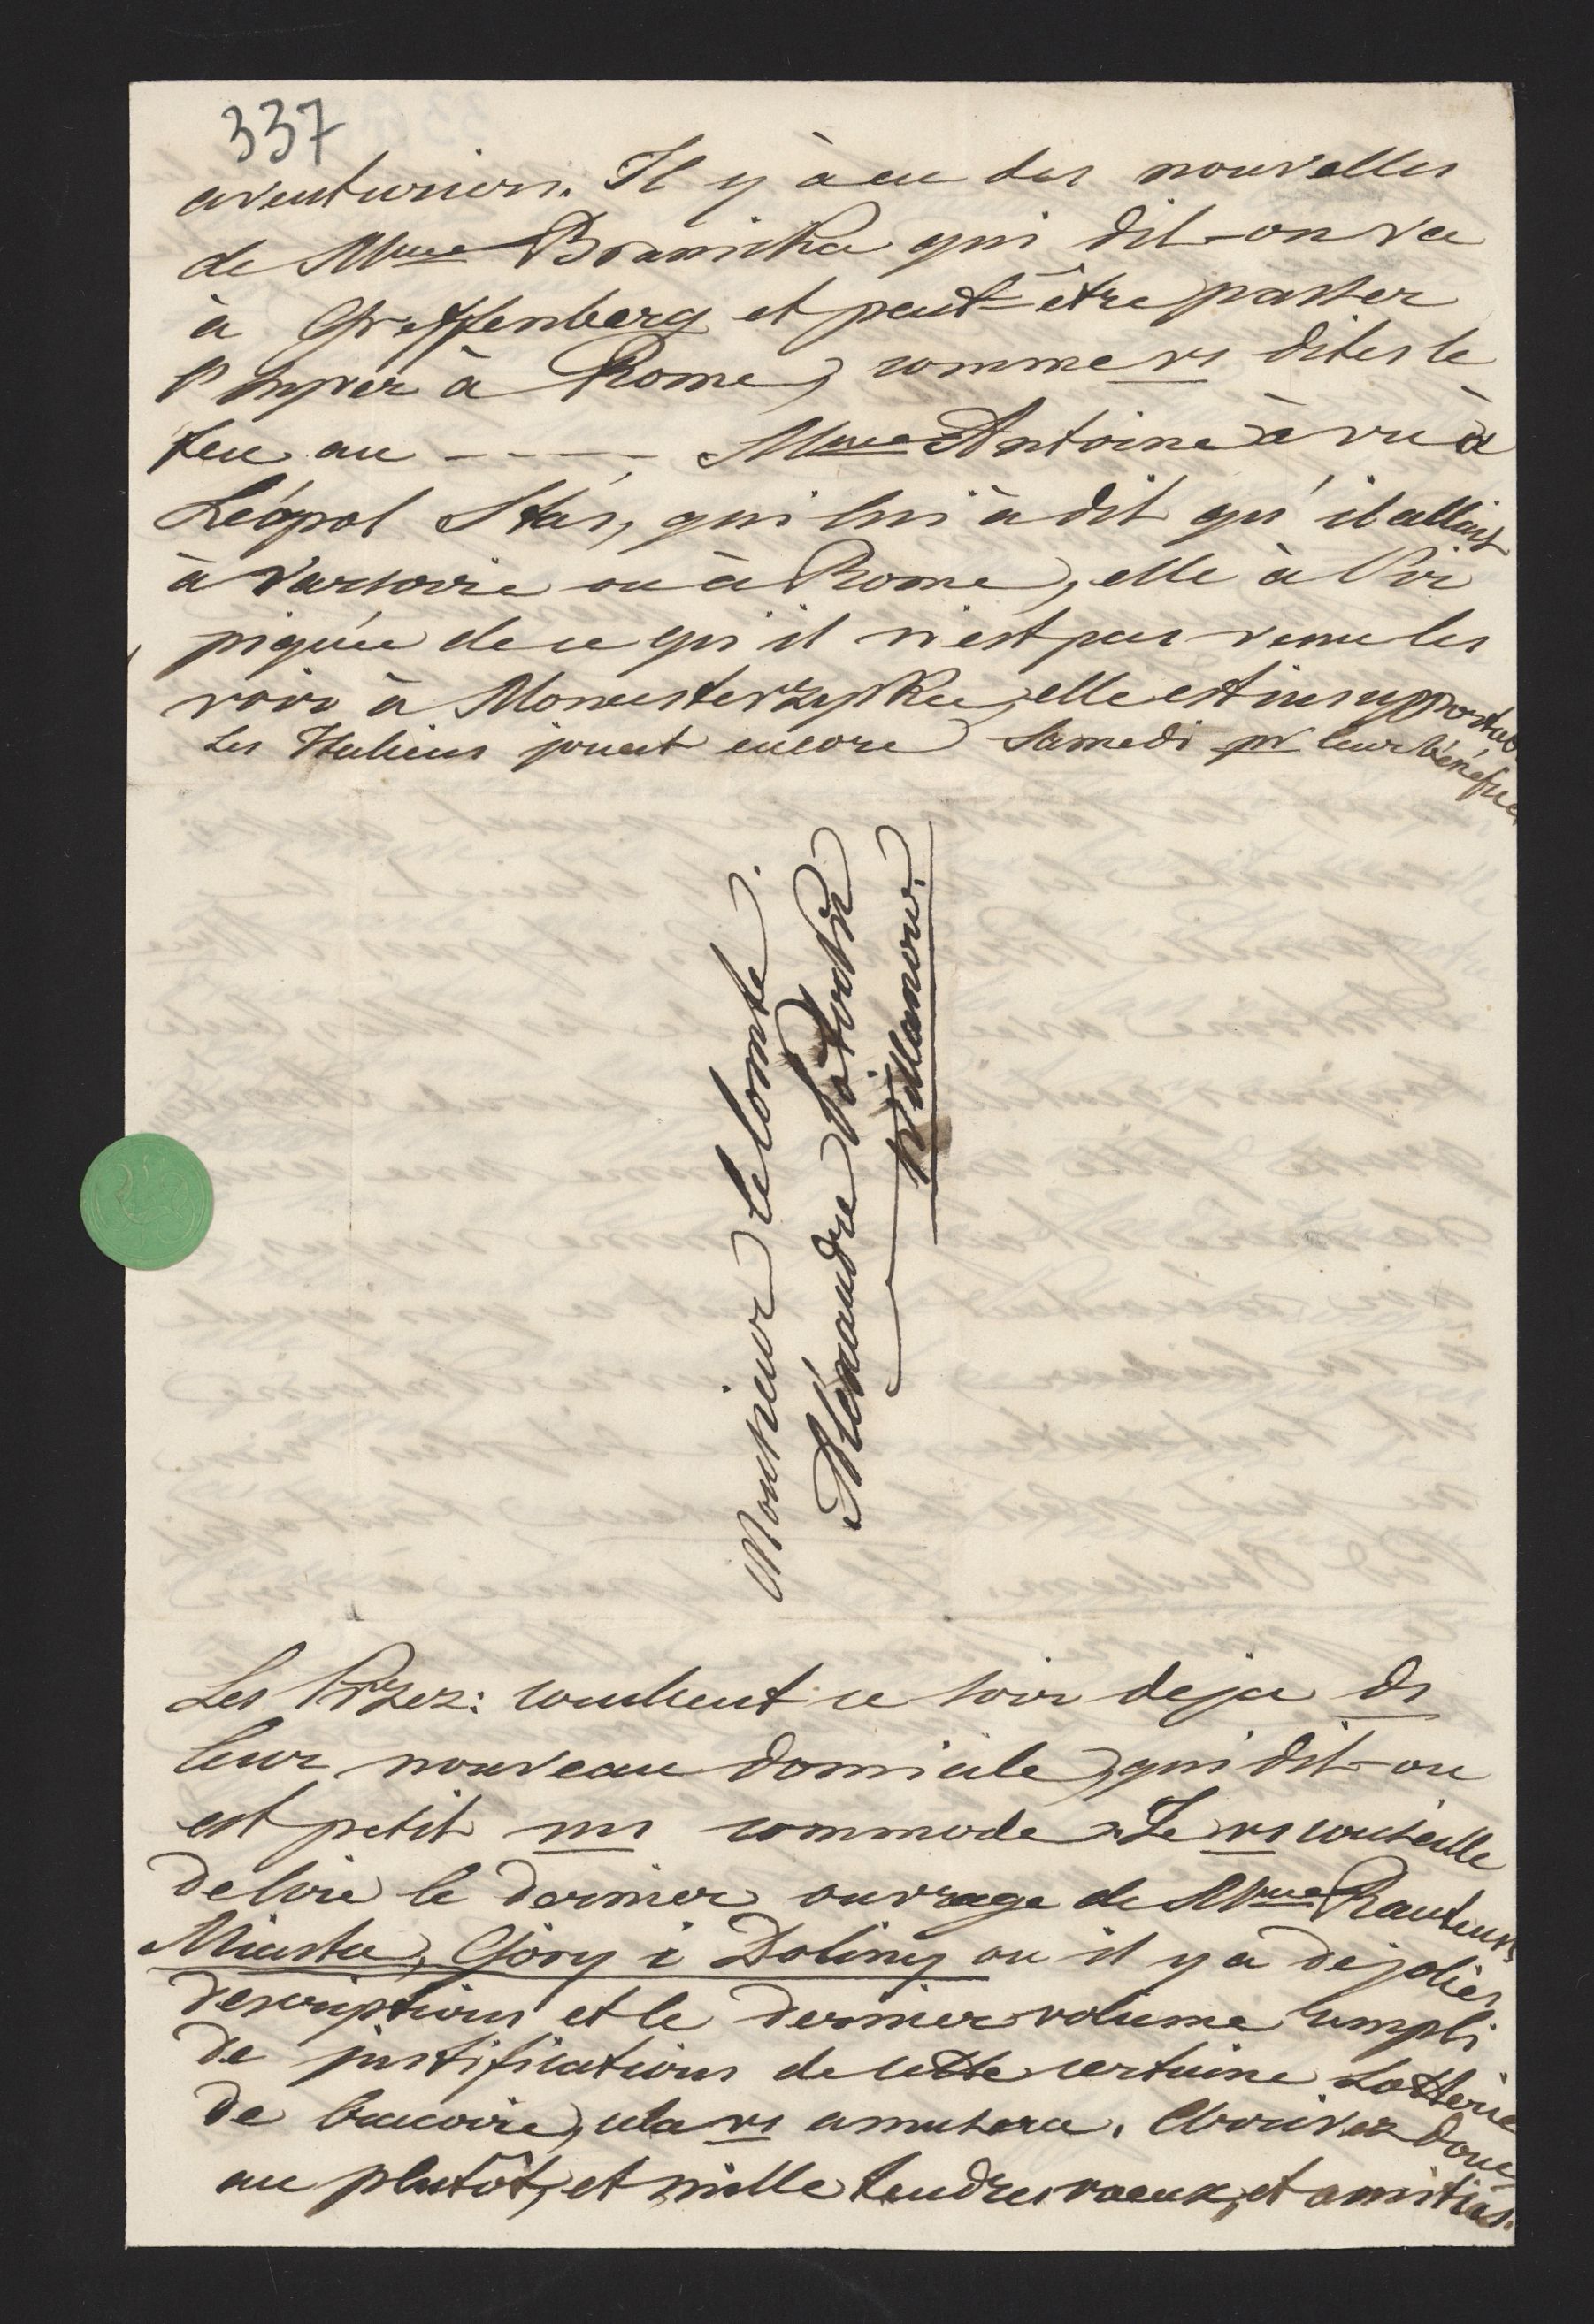 337
aventuriers. Il y à eu des nouvelles
de Mme Branicka qui dit-on va
à Greffenberg et peut-être passer
l'hyver à Rome, comme vs dites le
feu au ----- Mme Antoine à vu à
Léopol Stas, qui lui à dit qu'il allait
à Varsovie ou à Rome, elle à l'air
piquée de ce qu'il n'est pas venu les
voir à Monasterzyska, elle est insupportable
Les Italiens jouent encore Samedi pr leur bénéfice
Monsieur le Comte
Alexandre Potocki
Willanow.
Les Przez: couchent ce soir deja ds
leur nouveau domicile, qui dit-on
est petit ms commode. Je vs conseille
de lire le dernier ouvrage de Mme Rautens
Miasta, Góry i Doliny ou il y a de jolies
descriptions et le dernier volume rempli
de justifications de cette certaine Lotterie
de cela vs amusera. Arrivez donc
au plutôt, et mille tendres voeux, et amitiés.